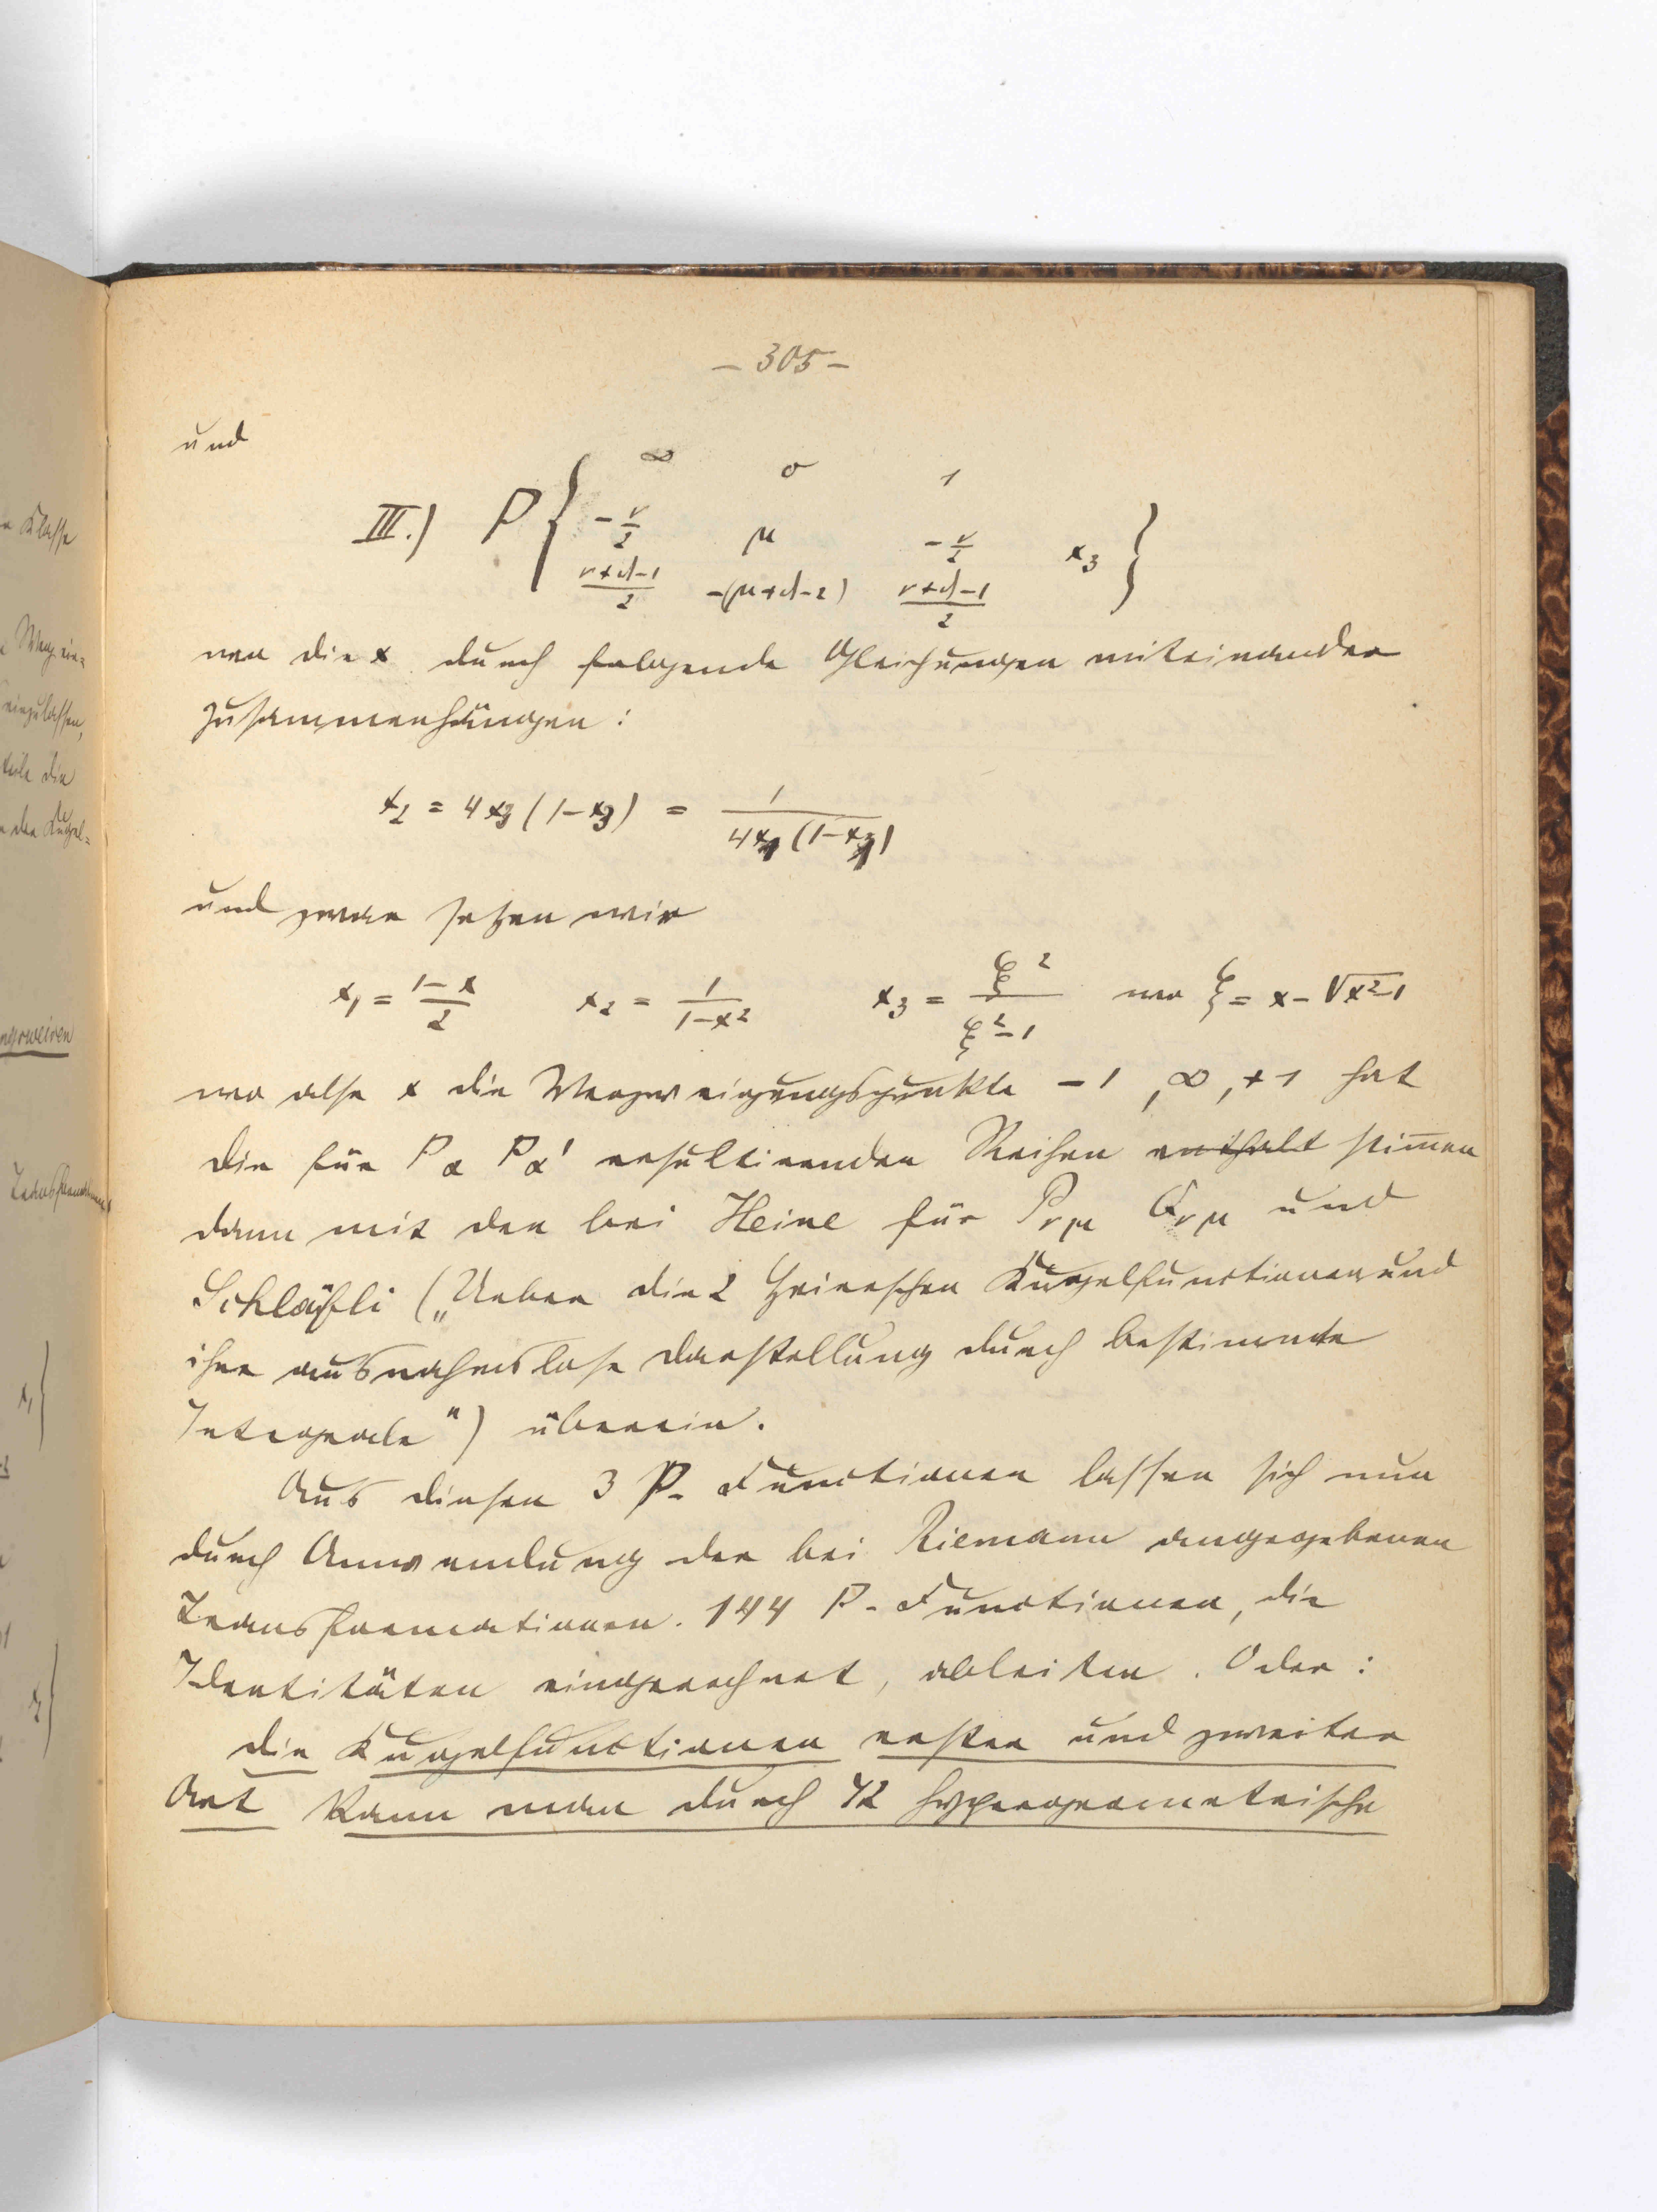 – 305 –
und
∞ 0 1
III.) P { -ν/2 μ -ν/2 x₃ }
(ν+d-1)/2 -(μ+d-2) (ν+d-1)/2
wo die x durch folgende Gleichungen miteinander
zusammenhängen:
x₂ = 4x₃(1-x₃) = 1/(4x₁(1-x₁))
und zwar setzen wir
x₁ = (1-x)/2 x₂ = 1/(1-x²) x₃ = ξ²/(ξ²-1) wo ξ = x - √(x²-1)
wo also x die Verzweigungspunkte -1, ∞, +1 hat
die für Pα Pα' resultirenden Reihen enthalt stimen
dann mit den bei Heine für Pνμ Qνμ und
Schläfli („Ueber die 2 Heineschen Kugelfunctionen und
ihre ausnahmslose Darstellung durch bestimmte
Integrale") überein.
Aus diesen 3 P-Functionen lassen sich nun
durch Anwendung der bei Riemann angegebenen
Transformationen. 144 P-Functionen, die
Identitäten eingerechnet, ableiten. Oder:
die Kugelfunctionen erster und zweiter
Art kann man durch 72 hypergeometrische
Klasse
einzulassen,
teile die
der Kugel=
x₁}